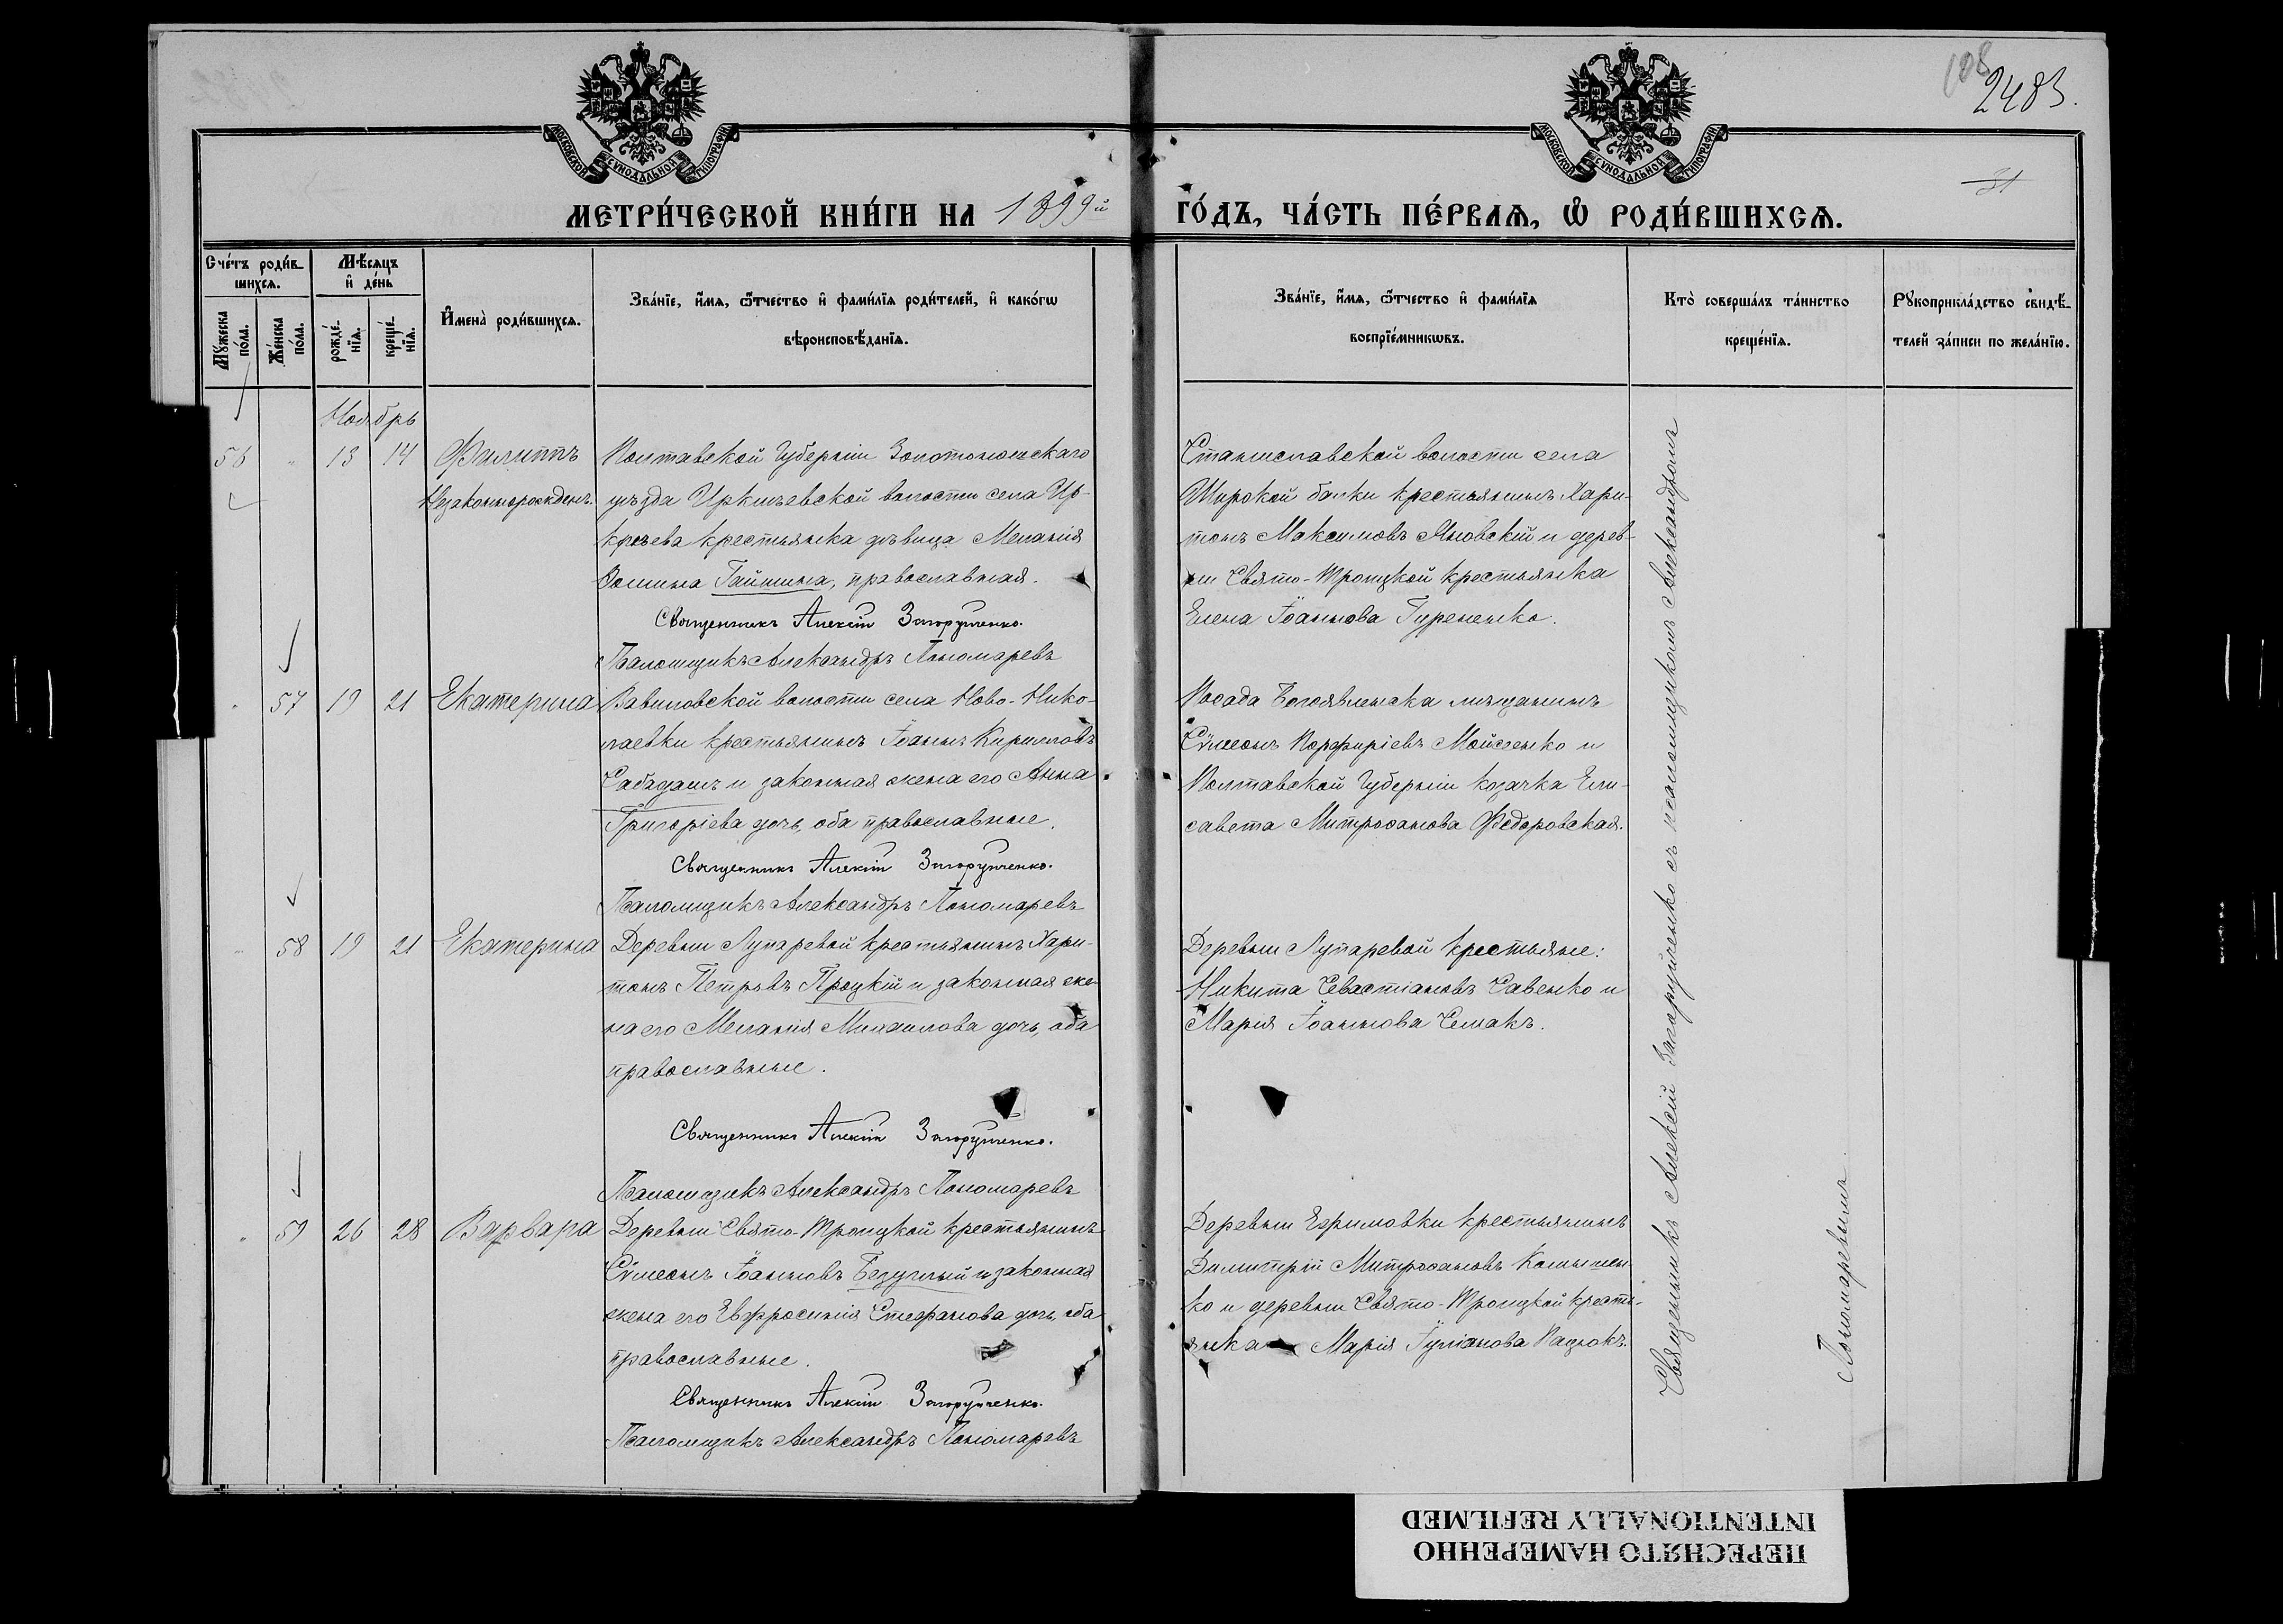 108
2483.
31
МОСКОВСКОЙ СУНОДАЛЬНОЙ ТИПОГРАФІИ
МОСКОВСКОЙ СУНОДАЛЬНОЙ ТИПОГРАФІИ
МЕТРИ́ЧЕСКОЙ КНИ́ГИ НА 1899й ГО́ДЪ, ЧА́СТЬ ПЕ́РВАѦ, Ѿ РОДИ́ВШИХСѦ.
Сче́тъ роди́в-
шихсѧ.
Мѣ́сѧцъ
и҆ де́нь
Мꙋ́жеска
по́ла.
Же́нска
по́ла.
рожде́-
нїѧ.
креще́-
нїѧ.
И҆мена̀ роди́вшихсѧ.
Зва́нїе, и҆́мѧ, ѻ҆́тчество и҆ фами́лїѧ роди́телей, и҆ како́гѡ
вѣроисповѣ́данїѧ.
Зва́нїе, и҆́мѧ, ѻ҆́тчество и҆ фами́лїѧ
воспрїе́мникѡвъ.
Кто̀ соверша́лъ та́инство
креще́нїѧ.
Рꙋкоприкла́дство свидѣ́-
телей за́писи по жела́нїю.
Ноябрь
56 " 13 14 Филиппъ
Незаконнорожден.
Полтавской Губерніи Золотоношскаго
уѣзда Иркліевской волости села Ир-
клѣева крестьянка дѣвица Меланія
Гайшина, православная.
Священникъ Алексій Загоруйченко.
Псаломщикъ Александръ Пономаревъ
Станиславской волости села
Широкой балки крестьянинъ Хари-
тонъ Максимовъ Яновскій и дерев-
ни Свято-Троицкой крестьянка
Елена Іоаннова Гуренко.
" 57 19 21 Екатерина
Вавиловской волости села Ново-Нико-
лаевки крестьянинъ Іоаннъ Кирилловъ
Сабадашъ и законная жена его Анна
Григоріева дочь, оба православные.
Священникъ Алексій Загоруйченко.
Псаломщикъ Александръ Пономаревъ
Посада Богоявленска мѣщанинъ
Сѵмеонъ Порфиріевъ Мойсенко и
Полтавской Губерніи козачка Ели-
савета Митрофанова Федоровская.
" 58 19 21 Екатерина
Деревни Лупаревой крестьянинъ Хари-
тонъ Петровъ Процкій и законная же-
на его Меланія Михаилова дочь, оба
православные.
Священникъ Алексій Загоруйченко.
Псаломщикъ Александръ Пономаревъ
Деревни Лупаревой крестьяне:
Никита Севастіановъ Савенко и
Марія Іоаннова Чемакъ.
" 59 26 28 Варвара
Деревни Свято-Троицкой крестьянинъ
Сѵмеонъ Іоанновъ Безуглый и законная
жена его Евфросинія Стефанова дочь, оба
православные.
Священникъ Алексій Загоруйченко.
Псаломщикъ Александръ Пономаревъ
Деревни Ефимовки крестьянинъ
Димитрій Митрофановъ Калинчен-
ко и деревни Свято-Троицкой кресть-
янка Марія Іуліанова Пацюкъ.
Священникъ Алексій Загоруйченко съ псаломщикомъ Александромъ
Пономаревымъ.
ПЕРЕСНЯТО НАМЕРЕННО
INTENTIONALLY REFILMED